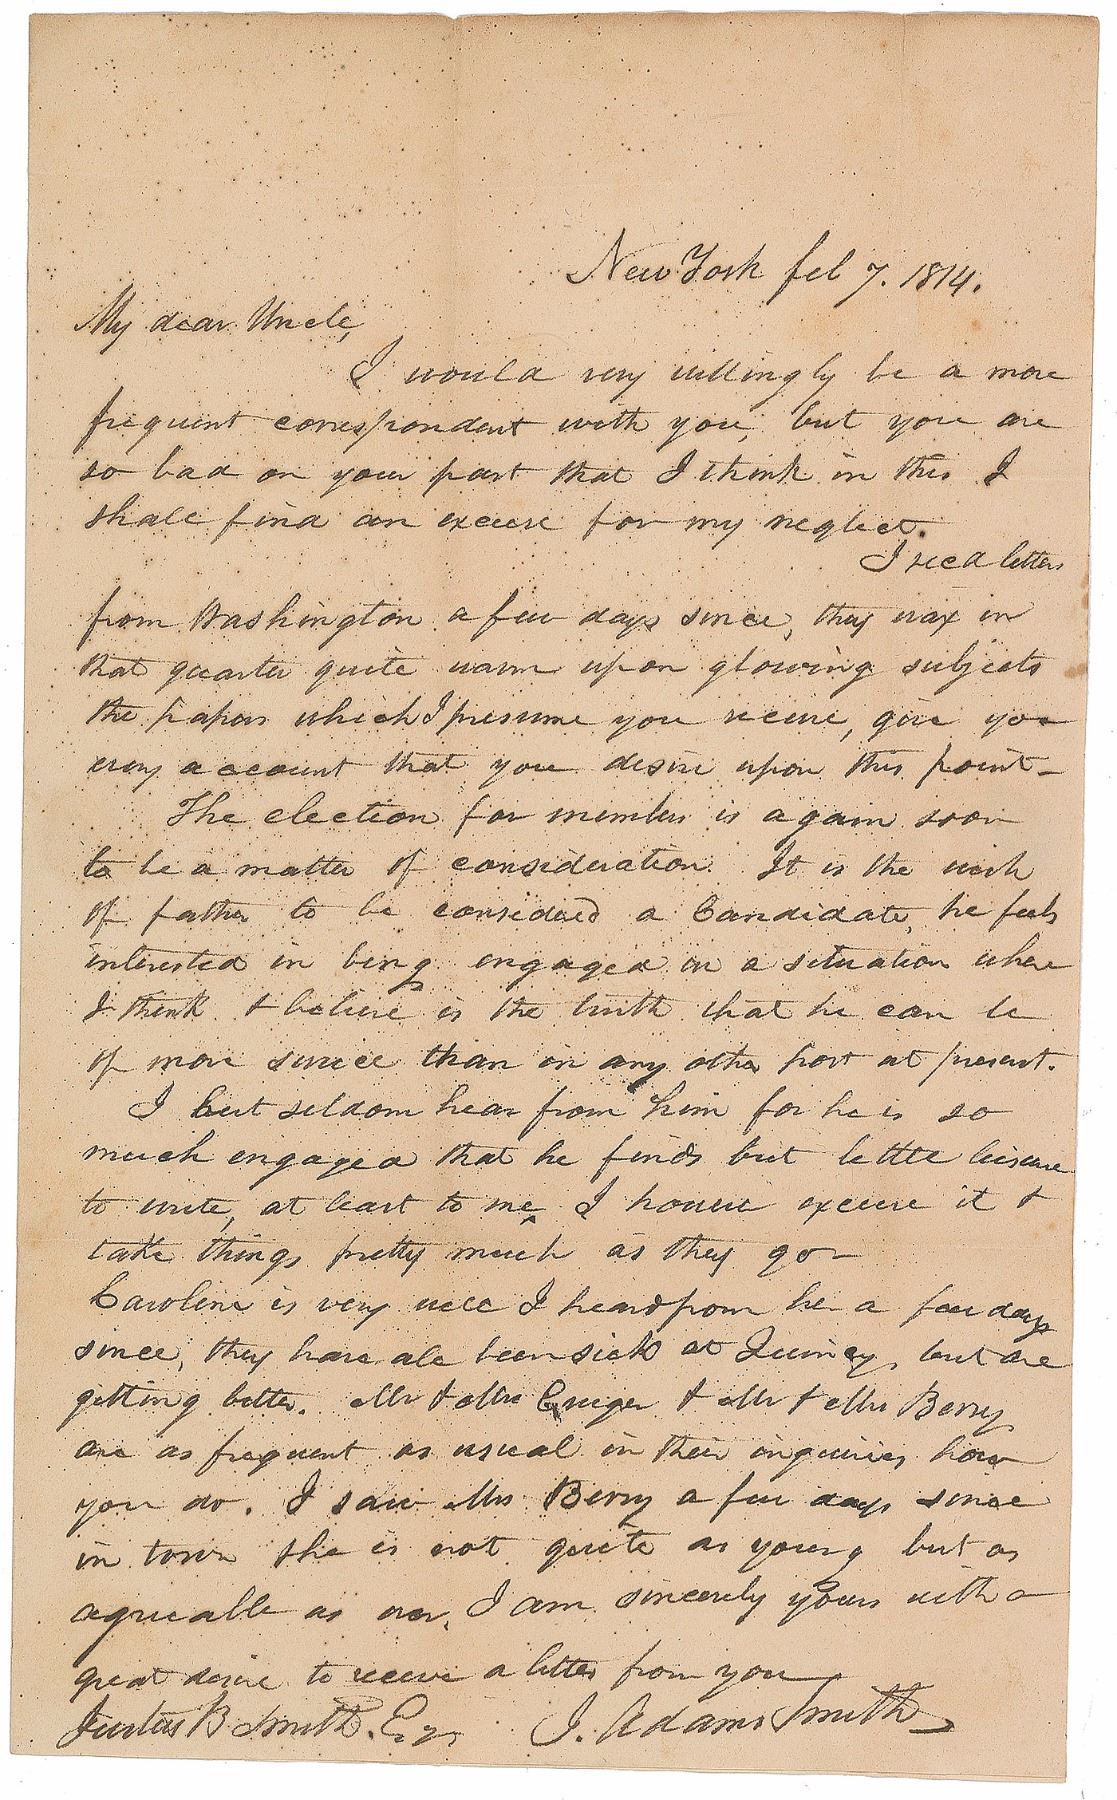 New York feb 7. 1814.
My dear Uncle,
I would very willingly be a more
frequent correspondent with you, but you are
so bad on your part that I think in this I
shall find an excuse for my neglect.
I recd letters
from Washington a few days since, they wax in
that quarter quite warm upon glowing subjects
the papers which I presume you receive, give you
every account that you desire upon this point -
The election for members is again soon
to be a matter of consideration. It is the wish
of father to be considered a Candidate, he feels
interested in being engaged in a situation where
I think & believe is the truth that he can be
of more service than in any other post at present.
I but seldom hear from him for he is so
much engaged that he finds but little leisure
to write, at least to me, I however excuse it &
take things pretty much as they go -
Caroline is very well I heard from her a few days
since, they have all been sick at Quincy, but are
getting better. Mr & Mrs Cruger & Mr & Mrs Berry
are as frequent as usual in their inquiries how
you do. I saw Mrs Berry a few days since
in town she is not quite as young but as
agreeable as ever. I am sincerely yours with a
great desire to receive a letter from you
Justus B Smith. Esqr. J. Adams Smith